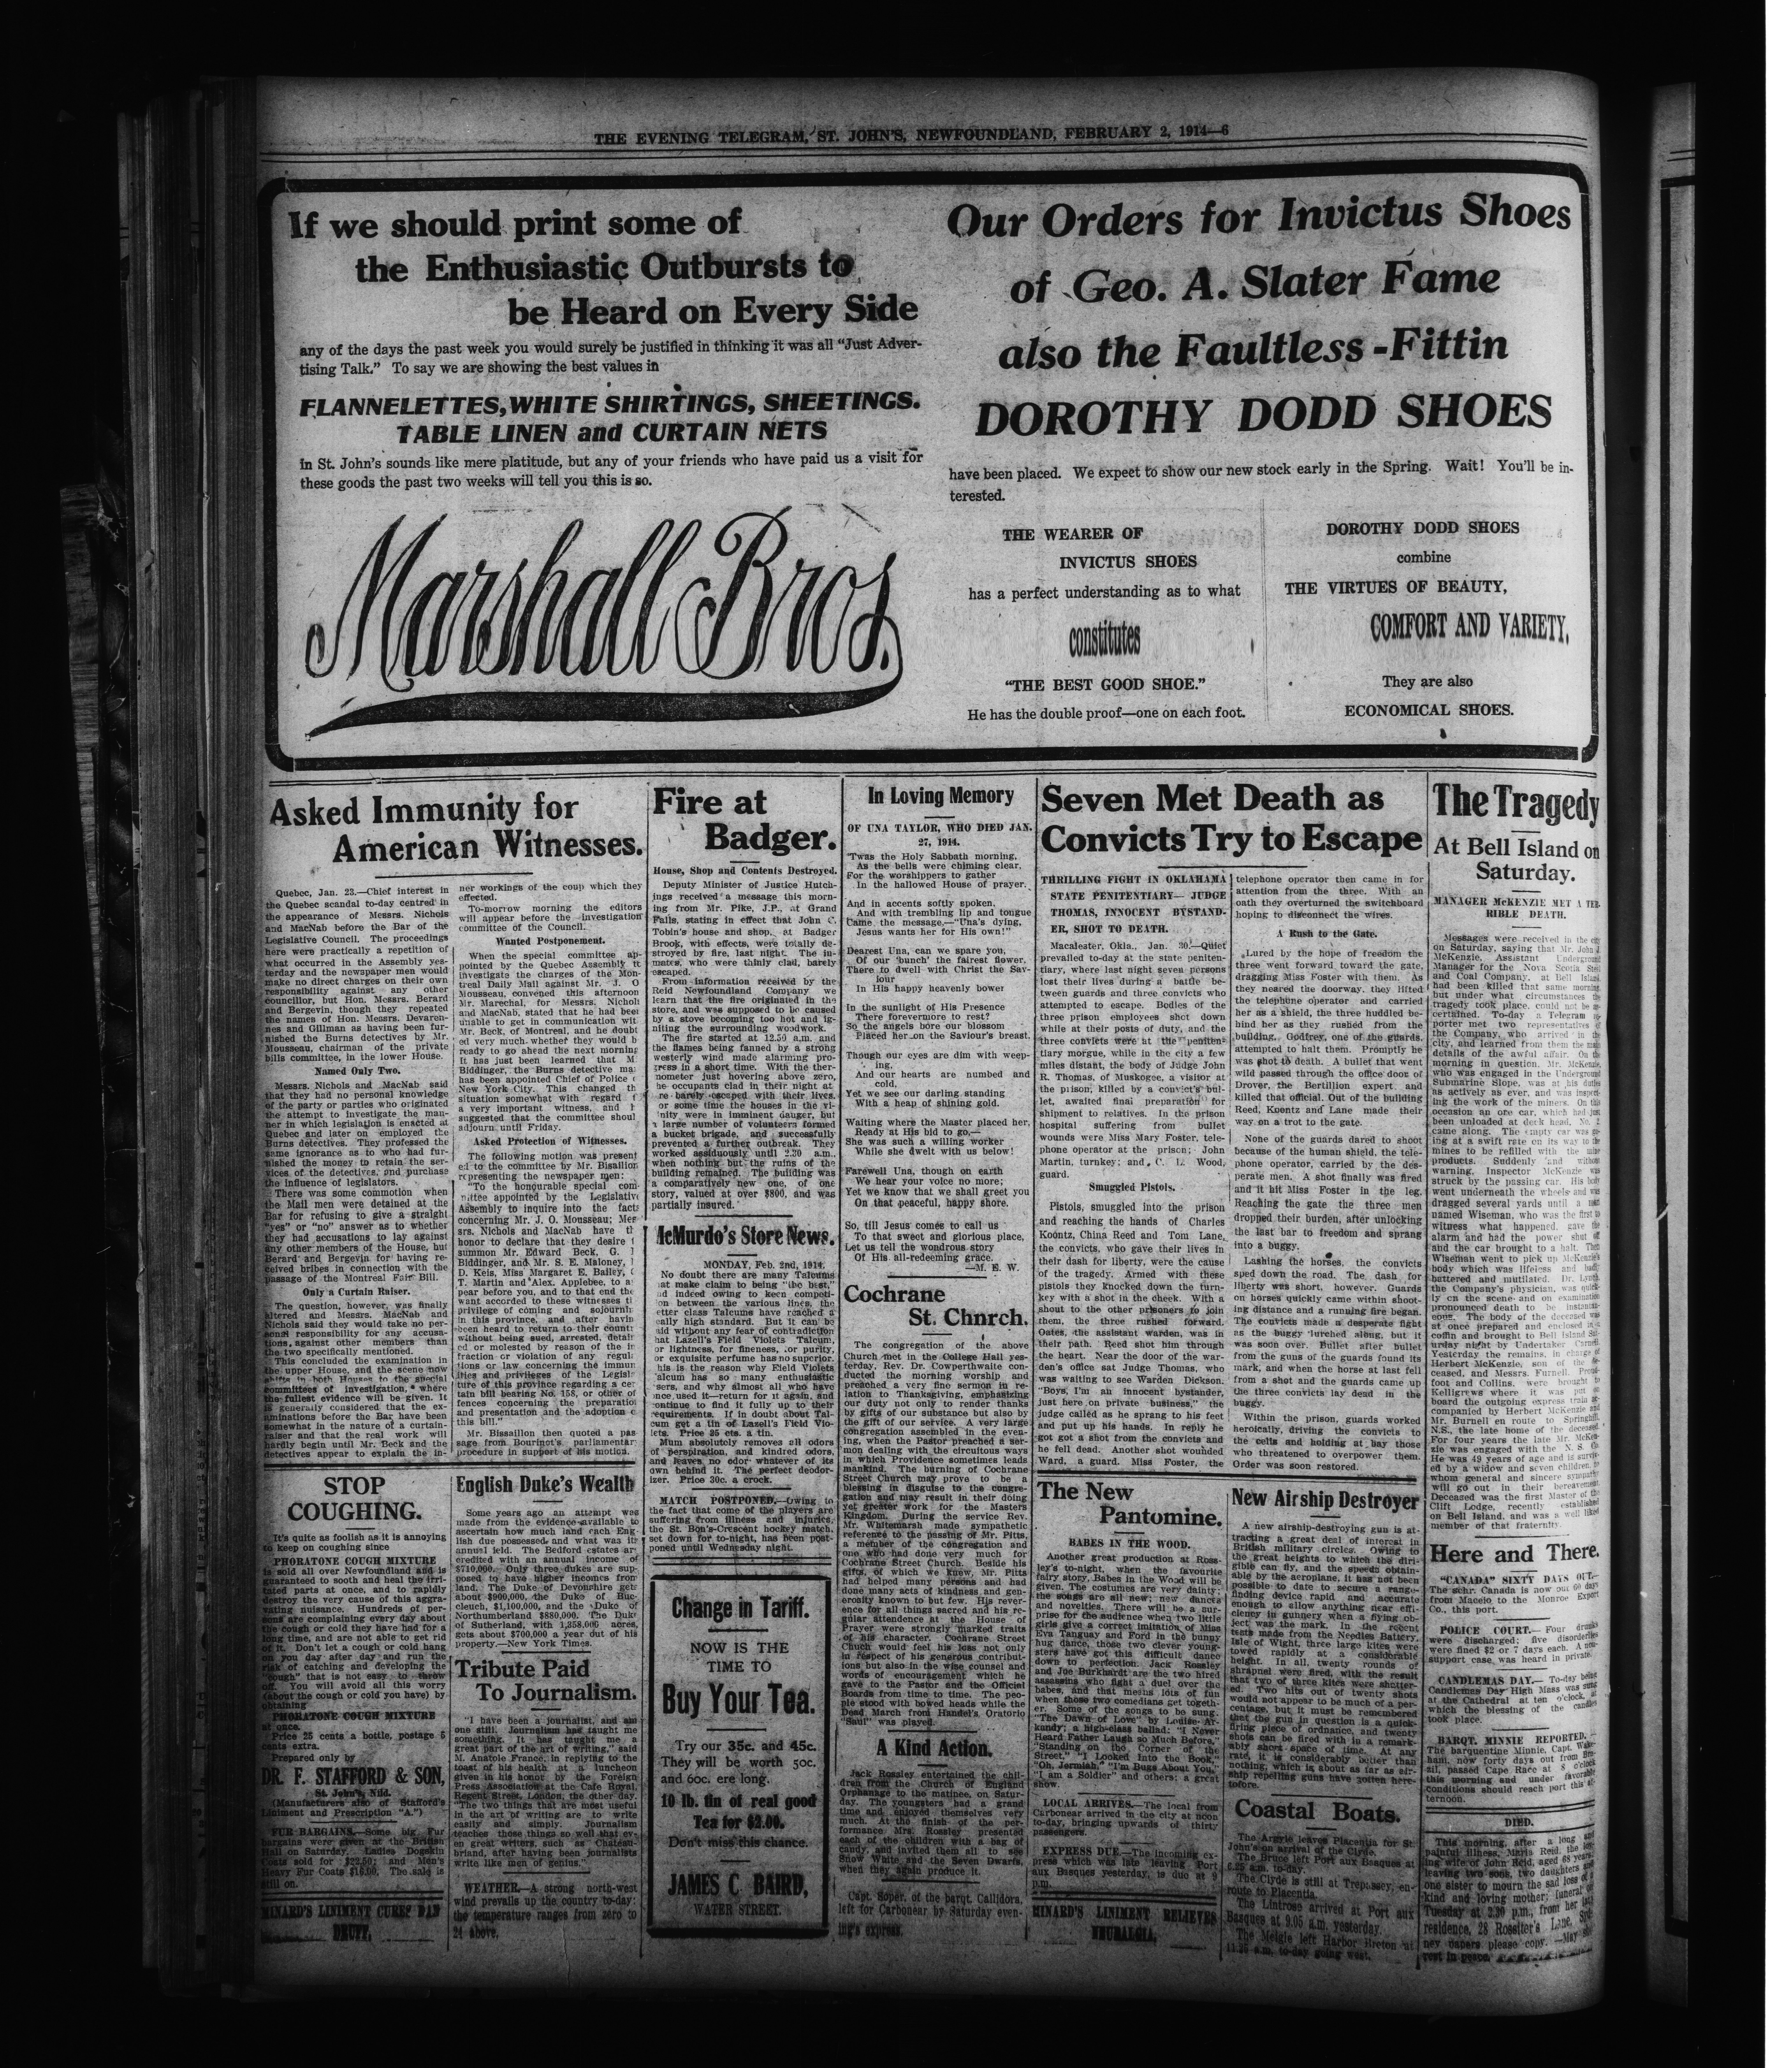 THE EVENING TELEGRAM, ST. JOHN'S, NEWFOUNDLAND, FEBRUARY 2, 1914—6
If we should print some of
the Enthusiastic Outbursts to
be Heard on Every Side
any of the days the past week you would surely be justified in thinking it was all "Just Adver-
tising Talk." To say we are showing the best values in
FLANNELETTES, WHITE SHIRTINGS, SHEETINGS.
TABLE LINEN and CURTAIN NETS
in St. John's sounds like mere platitude, but any of your friends who have paid us a visit for
these goods the past two weeks will tell you this is so.
Marshall Bros.
Our Orders for Invictus Shoes
of Geo. A. Slater Fame
also the Faultless-Fittin
DOROTHY DODD SHOES
have been placed. We expect to show our new stock early in the Spring. Wait! You'll be in-
terested.
THE WEARER OF
INVICTUS SHOES
has a perfect understanding as to what
constitutes
"THE BEST GOOD SHOE."
He has the double proof—one on each foot.
DOROTHY DODD SHOES
combine
THE VIRTUES OF BEAUTY,
COMFORT AND VARIETY,
They are also
ECONOMICAL SHOES.
Asked Immunity for
American Witnesses.
Quebec, Jan. 23.—Chief interest in
the Quebec scandal to-day centred in
the appearance of Messrs. Nichols
and MacNab before the Bar of the
Legislative Council. The proceedings
here were practically a repetition of
what occurred in the Assembly yes-
terday and the newspaper men would
make no direct charges on their own
responsibility against any other
councillor, but Hon. Messrs. Berard
and Bergevin, though they repeated
the names of Hon. Messrs. Devaren-
nes and Gillman as having been fur-
nished the Burns detectives by Mr.
Mousseau, chairman of the private
bills committee, in the lower House.
Named Only Two.
Messrs. Nichols and MacNab said
that they had no personal knowledge
of the party or parties who originated
the attempt to investigate the man-
ner in which legislation is enacted at
Quebec and later on employed the
Burns detectives. They professed the
same ignorance as to who had fur-
nished the money to retain the ser-
vices of the detectives, and purchase
the influence of legislators.
There was some commotion when
the Mail men were detained at the
Bar for refusing to give a straight
"yes" or "no" answer as to whether
they had accusations to lay against
any other members of the House, but
Berard and Bergevin for having re-
ceived bribes in connection with the
passage of the Montreal Fair Bill.
Only a Curtain Raiser.
The question, however, was finally
altered and Messrs. MacNab and
Nichols said they would take no per-
sonal responsibility for any accusa-
tions, against other members than
the two specifically mentioned.
This concluded the examination in
the upper House, and the scene now
shifts in both Houses to the special
committees of investigation, where
the fullest evidence will be given. It
is generally considered that the ex-
aminations before the Bar have been
somewhat in the nature of a curtain-
raiser and that the real work will
hardly begin until Mr. Beck and the
detectives appear to explain the in-
ner workings of the coup which they
effected.
To-morrow morning the editors
will appear before the investigation
committee of the Council.
Wanted Postponement.
When the special committee ap-
pointed by the Quebec Assembly
investigate the charges of the Mon-
treal Daily Mail against Mr. J. O
Mousseau, convened this afternoon
Mr. Marechal, for Messrs. Nichol
and MacNab, stated that he had bee
unable to get in communication wit
Mr. Beck, of Montreal, and he doubt
ed very much whether they would b
ready to go ahead the next morning
It has just been learned that M
Biddinger, the Burns detective ma
has been appointed Chief of Police
New York City. This changed th
situation somewhat with regard
a very important witness, and
suggested that the committee shoul
adjourn until Friday.
Asked Protection of Witnesses.
The following motion was present
ed to the committee by Mr. Bisaillon
representing the newspaper men:
"To the honourable special com
mittee appointed by the Legislative
Assembly to inquire into the facts
concerning Mr. J. O. Mousseau; Mes
srs. Nichols and MacNab have t
honor to declare that they desire
summon Mr. Edward Beck, G.
Biddinger, and Mr. S. E. Maloney,
D. Keis, Miss Margaret E. Bailey,
T. Martin and Alex. Applebee, to a
pear before you, and to that end the
want accorded to these witnesses t
privilege of coming and sojourni
in this province, and after havin
been heard to return to their countr
without being sued, arrested, detain
ed or molested by reason of the in
fraction or violation of any regul
tions or law concerning the immun
ities and privileges of the Legisl
ture of this province regarding a ce
tain bill bearing No. 158, or other of
fences concerning the preparatio
and presentation and the adoption
this bill."
Mr. Bissaillon then quoted a pas
sage from Bourinot's parliamentar
procedure in support of his motion.
STOP
COUGHING.
It's quite as foolish as it is annoying
to keep on coughing since
PHORATONE COUGH MIXTURE
is sold all over Newfoundland and is
guaranteed to sooth and heal the irri-
tated parts at once, and to rapidly
destroy the very cause of this aggra-
vating nuisance. Hundreds of per-
sons are complaining every day about
the cough or cold they have had for a
long time, and are not able to get rid
of it. Don't let a cough or cold hang
on you day after day and run the
risk of catching and developing the
"cough" that is not easy to throw
off. You will avoid all this worry
(about the cough or cold you have) by
obtaining
PHORATONE COUGH MIXTURE
at once.
Price 25 cents a bottle, postage 5
cents extra.
Prepared only by
DR. F. STAFFORD & SON,
St. John's, Nfld.
(Manufacturers also of Stafford's
Liniment and Prescription "A.")
FUR BARGAINS.—Some big Fur
bargains were given at the British
Hall on Saturday. Ladies Dogskin
Coats sold for $22.50; and Men's
Heavy Fur Coats $16.00. The sale is
still on.
MINARD'S LINIMENT CURES DAN
DRUFF.
English Duke's Wealth
Some years ago an attempt was
made from the evidence available to
ascertain how much land each Eng
lish due possessed and what was its
annual feld. The Bedford estates ar
credited with an annual income of
$710,000. Only three dukes are sup-
posed to have higher incomes from
land. The Duke of Devonshire gets
about $900,000, the Duke of Buc-
cleuch, $1,100,000, and the Duke of
Northumberland $880,000. The Duke
of Sutherland, with 1,358,000 acres,
gets about $700,000 a year out of his
property.—New York Times.
Tribute Paid
To Journalism.
"I have been a journalist, and am
one still. Journalism has taught me
something. It has taught me a
great part of the art of writing," said
M. Anatole France, in replying to the
toast of his health at a luncheon
given in his honor by the Foreign
Press Association at the Cafe Royal,
Regent Street, London, the other day.
"The two things that are most useful
in the art of writing are to write
easily and simply. Journalism
teaches those things so well that ev-
en great writers, such as Chateau-
briand, after having been journalists
write like men of genius."
WEATHER.—A strong north-west
wind prevails up the country to-day;
the temperature ranges from zero to
24 above.
Fire at
Badger.
House, Shop and Contents Destroyed.
Deputy Minister of Justice Hutch-
ings received a message this morn-
ing from Mr. Pike, J.P., at Grand
Falls, stating in effect that John C.
Tobin's house and shop, at Badger
Brook, with effects, were totally de-
stroyed by fire, last night. The in-
mates, who were thinly clad, barely
escaped.
From information received by the
Reid Newfoundland Company we
learn that the fire originated in the
store, and was supposed to be caused
by a stove becoming too hot and ig-
niting the surrounding woodwork.
The fire started at 12.50 a.m. and
the flames being fanned by a strong
westerly wind made alarming pro-
gress in a short time. With the ther-
mometer just hovering above zero,
he occupants clad in their night at
re barely escaped with their lives.
or some time the houses in the vi-
inity were in imminent danger, but
a large number of volunteers formed
a bucket brigade, and successfully
prevented a further outbreak. They
worked assiduously until 2.30 a.m.,
when nothing but the ruins of the
building remained. The building was
a comparatively new one, of one
story, valued at over $800, and was
partially insured.
McMurdo's Store News.
MONDAY, Feb. 2nd, 1914.
No doubt there are many Talcums
at make claim to being "the best,"
nd indeed owing to keen competi-
on between the various lines, the
etter class Talcums have reached a
eally high standard. But it can be
aid without any fear of contradiction
hat Lazell's Field Violets Talcum,
or lightness, for fineness, or purity,
or exquisite perfume has no superior.
his is the reason why Field Violets
alcum has so many enthusiastic
sers, and why almost all who have
nce used it—return for it again, and
ontinue to find it fully up to their
requirements. If in doubt about Tal-
cum get a tin of Lazell's Field Vio-
lets. Price 25 cts. a tin.
Mum absolutely removes all odors
of perspiration, and kindred odors,
and leaves no odor whatever of its
own behind it. The perfect deodor-
izer. Price 30c. a crock.
MATCH POSTPONED.—Owing to
the fact that come of the players are
suffering from illness and injuries,
the St. Bon's-Crescent hockey match,
set down for to-night, has been post-
poned until Wednesday night.
Change in Tariff.
NOW IS THE
TIME TO
Buy Your Tea.
Try our 35c. and 45c.
They will be worth 50c.
and 60c. ere long.
10 lb. tin of real good
Tea for $2.00.
Don't miss this chance.
JAMES C. BAIRD,
WATER STREET.
In Loving Memory
OF UNA TAYLOR, WHO DIED JAN.
27, 1914.
'Twas the Holy Sabbath morning,
As the bells were chiming clear,
For the worshippers to gather
In the hallowed House of prayer.
And in accents softly spoken,
And with trembling lip and tongue
Came the message,—"Una's dying,
Jesus wants her for His own!"
Dearest Una, can we spare you,
Of our 'bunch' the fairest flower,
There to dwell with Christ the Sav-
iour
In His happy heavenly bower
In the sunlight of His Presence
There forevermore to rest?
So the angels bore our blossom
Placed her on the Saviour's breast.
Though our eyes are dim with weep-
ing,
And our hearts are numbed and
cold,
Yet we see our darling standing
With a heap of shining gold.
Waiting where the Master placed her,
Ready at His bid to go,—
She was such a willing worker
While she dwelt with us below!
Farewell Una, though on earth
We hear your voice no more;
Yet we know that we shall greet you
On that peaceful, happy shore.
So, till Jesus comes to call us
To that sweet and glorious place,
Let us tell the wondrous story
Of His all-redeeming grace.
—M. E. W.
Cochrane
St. Chnrch.
The congregation of the above
Church met in the College Hall yes-
terday. Rev. Dr. Cowperthwaite con-
ducted the morning worship and
preached a very fine sermon in re-
lation to Thanksgiving, emphasizing
our duty not only to render thanks
by gifts of our substance but also by
the gift of our service. A very large
congregation assembled in the even-
ing, when the Pastor preached a ser-
mon dealing with the circuitous ways
in which Providence sometimes leads
mankind. The burning of Cochrane
Street Church may prove to be a
blessing in disguise to the congre-
gation and may result in their doing
yet greater work for the Masters
Kingdom. During the service Rev.
Mr. Whitemarsh made sympathetic
reference to the passing of Mr. Pitts,
a member of the congregation and
one who had done very much for
Cochrane Street Church. Beside his
gifts, of which we knew, Mr. Pitts
had helped many persons and had
done many acts of kindness and gen-
erosity known to but few. His rever-
ence for all things sacred and his re-
gular attendance at the House of
Prayer were strongly marked traits
of his character. Cochrane Street
Chuch would feel his loss not only
in respect of his generous contribut-
ions but also in the wise counsel and
words of encouragement which he
gave to the Pastor and the Official
Boards from time to time. The peo-
ple stood with bowed heads while the
Dead March from Handel's Oratorio
"Saul" was played.
A Kind Action.
Jack Rossley entertained the chil-
dren from the Church of England
Orphanage to the matinee, on Satur-
day. The youngsters had a grand
time and enjoyed themselves very
much. At the finish of the per-
formance Mrs. Rossley presented
each of the children with a bag of
candy, and invited them all to see
Snow White and the Seven Dwarfs,
when they again produce it.
Capt. Soper, of the barqt. Callidora,
left for Carbonear by Saturday even-
ing's express.
Seven Met Death as
Convicts Try to Escape
THRILLING FIGHT IN OKLAHAMA
STATE PENITENTIARY— JUDGE
THOMAS, INNOCENT BYSTAND-
ER, SHOT TO DEATH.
Macaleater, Okla., Jan. 30.—Quiet
prevailed to-day at the state peniten-
tiary, where last night seven persons
lost their lives during a battle be-
tween guards and three convicts who
attempted to escape. Bodies of the
three prison employees shot down
while at their posts of duty, and the
three convicts were at the peniten-
tiary morgue, while in the city a few
miles distant, the body of Judge John
R. Thomas, of Muskogee, a visitor at
the prison, killed by a convict's bul-
let, awaited final preparation for
shipment to relatives. In the prison
hospital suffering from bullet
wounds were Miss Mary Foster, tele-
phone operator at the prison; John
Martin, turnkey; and C. L. Wood,
guard.
Smuggled Pistols.
Pistols, smuggled into the prison
and reaching the hands of Charles
Koontz, China Reed and Tom Lane,
the convicts, who gave their lives in
their dash for liberty, were the cause
of the tragedy. Armed with these
pistols they knocked down the turn-
key with a shot in the cheek. With a
shout to the other prisoners to join
them, the three rushed forward.
Oates, the assistant warden, was in
their path. Reed shot him through
the heart. Near the door of the war-
den's office sat Judge Thomas, who
was waiting to see Warden Dickson.
"Boys, I'm an innocent bystander,
just here on private business," the
judge called as he sprang to his feet
and put up his hands. In reply he
got got a shot from the convicts and
he fell dead. Another shot wounded
Ward, a guard. Miss Foster, the
telephone operator then came in for
attention from the three. With an
oath they overturned the switchboard
hoping to disconnect the wires.
A Rush to the Gate.
Lured by the hope of freedom the
three went forward toward the gate,
dragging Miss Foster with them. As
they neared the doorway, they lifted
the telephone operator and carried
her as a shield, the three huddled be-
hind her as they rushed from the
building. Godfrey, one of the guards,
attempted to halt them. Promptly he
was shot to death. A bullet that went
wild passed through the office door of
Drover, the Bertillion expert, and
killed that official. Out of the building
Reed, Koontz and Lane made their
way on a trot to the gate.
None of the guards dared to shoot
because of the human shield, the tele-
phone operator, carried by the des-
perate men. A shot finally was fired
and it hit Miss Foster in the leg.
Reaching the gate the three men
dropped their burden, after unlocking
the last bar to freedom and sprang
into a buggy.
Lashing the horses, the convicts
sped down the road. The dash for
liberty was short, however. Guards
on horses quickly came within shoot-
ing distance and a running fire began.
The convicts made a desperate fight
as the buggy lurched along, but it
was soon over. Bullet after bullet
from the guns of the guards found its
mark, and when the horse at last fell
from a shot and the guards came up
the three convicts lay dead in the
buggy.
Within the prison, guards worked
heroically, driving the convicts to
the cells and holding at bay those
who threatened to overpower them.
Order was soon restored.
The New
Pantomine.
BABES IN THE WOOD.
Another great production at Ross-
ley's to-night, when the favourite
fairy story, Babes in the Wood will be
given. The costumes are very dainty;
the songs are all new; new dances
and novelties. There will be a sur-
prise for the audience when two little
girls give a correct imitation of Miss
Eva Tanguay and Ford in the bunny
hug dance, those two clever young-
sters have got this difficult dance
down to perfection. Jack Rossley
and Joe Burkhardt are the two hired
assassins who fight a duel over the
babes, and that means lots of fun
when those two comedians get togeth-
er. Some of the songs to be sung.
"The Dawn of Love" by Louise Ar-
kandy; a high-class ballad; "I Never
Heard Father Laugh so Much Before,"
"Standing on the Corner of the
Street," "I Looked Into the Book,"
"Oh, Jermiah," "I'm Bugs About You,"
"I am a Soldier" and others; a great
show.
LOCAL ARRIVES.—The local from
Carbonear arrived in the city at noon
to-day, bringing upwards of thirty
passengers.
EXPRESS DUE.—The incoming ex-
press which was late leaving Port
aux Basques yesterday, is due at 9
p.m.
MINARD'S LINIMENT RELIEVES
NEURALGIA.
New Airship Destroyer
A new airship-destroying gun is at-
tracting a great deal of interest in
British military circles. Owing to
the great heights to which the diri-
gible can fly, and the speeds obtain-
able by the aeroplane, it has not been
possible to date to secure a range-
finding device rapid and accurate
enough to allow anything near effi-
ciency in gunnery when a flying ob-
ject was the mark. In the recent
tests made from the Needles Battery,
Isle of Wight, three large kites were
towed rapidly at a considerable
height. In all, twenty rounds of
shrapnel were fired, with the result
that two of three kites were shatter-
ed. Two hits out of twenty shots
would not appear to be much of a per-
centage, but it must be remembered
that the gun in question is a quick-
firing piece of ordnance, and twenty
shots can be fired with in a remark-
ably short space of time. At any
rate, it is considerably better than
nothing, which is about as far as air-
ship repelling guns have gotten here-
tofore.
Coastal Boats.
The Argyle leaves Placentia for St.
John's on arrival of the Clyde.
The Bruce left Port aux Basques at
6.25 a.m. to-day.
The Clyde is still at Trepassey, en-
route to Placentia.
The Lintrose arrived at Port aux
Basques at 9.05 a.m. yesterday.
The Meigle left Harbor Breton at
11.25 a.m. to-day going west.
The Tragedy
At Bell Island on
Saturday.
MANAGER McKENZIE MET A TER-
RIBLE DEATH.
Messages were received in the city
on Saturday, saying that Mr. John J.
McKenzie, Assistant Underground
Manager for the Nova Scotia Steel
and Coal Company, at Bell Island,
had been killed that same morning,
but under what circumstances the
tragedy took place, could not be as-
certained. To-day a Telegram re-
porter met two representatives of
the Company, who arrived in the
city, and learned from them the main
details of the awful affair. On the
morning in question, Mr. McKenzie,
who was engaged in the Underground
Submarine Slope, was at his duties
as actively as ever, and was inspect-
ing the work of the miners. On this
occasion an ore car, which had just
been unloaded at deck head, No. 2
came along. The empty car was go-
ing at a swift rate on its way to the
mines to be refilled with the mine
products. Suddenly and without
warning, Inspector McKenzie was
struck by the passing car. His body
went underneath the wheels and was
dragged several yards until a man
named Wiseman, who was the first to
witness what happened, gave the
alarm and had the power shut off
and the car brought to a halt. Then
Wiseman went to pick up McKenzie's
body which was lifeless and badly
battered and mutilated. Dr. Lynch,
the Company's physician, was quick-
ly on the scene and on examination
pronounced death to be instantan-
eous. The body of the deceased was
at once prepared and enclosed in a
coffin and brought to Bell Island Sat-
urday night by Undertaker Carnell.
Yesterday the remains, in charge of
Herbert McKenzie, son of the de-
ceased, and Messrs. Furnell, Proud-
foot and Collins, were brought to
Kelligrews where it was put on
board the outgoing express train ac-
companied by Herbert McKenzie and
Mr. Burnell en route to Springhill,
N.S., the late home of the deceased.
For four years the late Mr. McKen-
zie was engaged with the N. S. Co.
He was 49 years of age and is surviv-
ed by a widow and seven children, to
whom general and sincere sympathy
will go out in their bereavement.
Deceased was the first Master of the
Clift Lodge, recently established
on Bell Island, and was a well liked
member of that fraternity.
Here and There.
"CANADA" SIXTY DAYS OUT.—
The schr. Canada is now out 60 days
from Maceio to the Monroe Export
Co., this port.
POLICE COURT.—Four drunks
were discharged; five disorderlies
were fined $2 or 7 days each. A non-
support case was heard in private.
CANDLEMAS DAY.—To-day being
Candlemas Day High Mass was sung
at the Cathedral at ten o'clock, at
which the blessing of the candles
took place.
BARQT. MINNIE REPORTED.—
The barquentine Minnie, Capt. Wake-
ham, now forty days out from Bra-
zil, passed Cape Race at 8 o'clock
this morning and under favorable
conditions should reach port this af-
ternoon.
DIED.
This morning, after a long and
painful illness, Maria Reid, the lov-
ing wife of John Reid, aged 68 years,
leaving two sons, two daughters and
one sister to mourn the sad loss of a
kind and loving mother; funeral on
Tuesday at 2.30 p.m., from her late
residence, 28 Rossiter's Lane, Syd-
ney papers please copy. —May she
rest in peace.